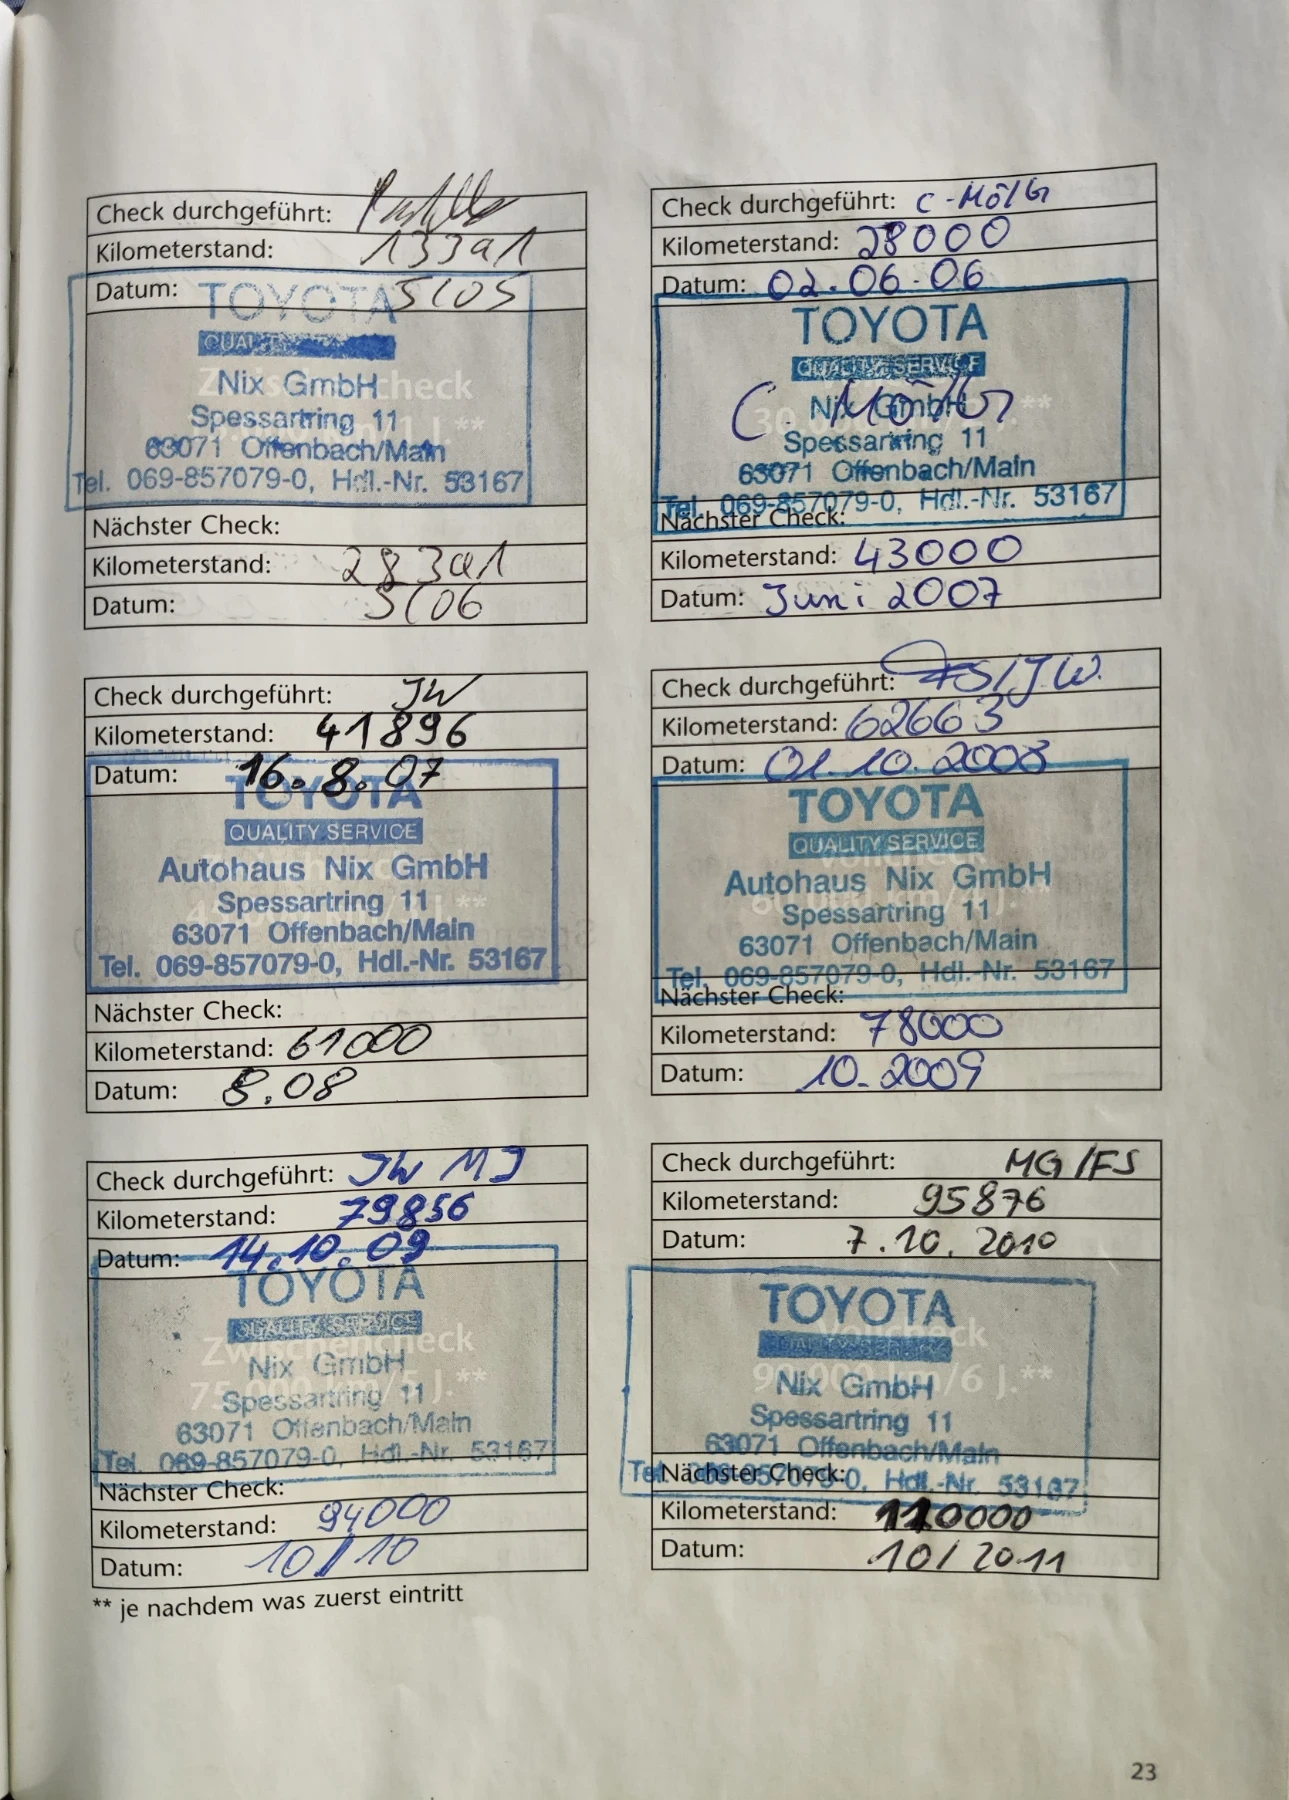 Check durchgeführt:
Kilometerstand: 13391
Datum: 5/05
TOYOTA
QUALITY
Zwischencheck
Nix GmbH
Spessartring 11
63071 Offenbach/Main
Tel. 069-857079-0, Hdl.-Nr. 53167
Nächster Check:
Kilometerstand: 28391
Datum: 5/06
Check durchgeführt:
Kilometerstand: 28000
Datum: 02.06.06
TOYOTA
QUALITY SERVICE
Nix GmbH
Spessartring 11
63071 Offenbach/Main
Tel. 069-857079-0, Hdl.-Nr. 53167
Nächster Check:
Kilometerstand: 43000
Datum: Juni 2007
Check durchgeführt: JW
Kilometerstand: 41896
Datum: 16.8.07
TOYOTA
QUALITY SERVICE
Autohaus Nix GmbH
Spessartring 11
63071 Offenbach/Main
Tel. 069-857079-0, Hdl.-Nr. 53167
Nächster Check:
Kilometerstand: 61000
Datum: 8.08
Check durchgeführt: FS/JW.
Kilometerstand: 62663
Datum: 01.10.2008
TOYOTA
QUALITY SERVICE
Vollcheck
Autohaus Nix GmbH
Spessartring 11
63071 Offenbach/Main
Tel. 069-857079-0, Hdl.-Nr. 53167
Nächster Check:
Kilometerstand: 78000
Datum: 10.2009
Check durchgeführt: JW MJ
Kilometerstand: 79856
Datum: 14.10.09
TOYOTA
QUALITY SERVICE
Zwischencheck
Nix GmbH
75.000 km/5 J.**
Spessartring 11
63071 Offenbach/Main
Tel. 069-857079-0, Hdl.-Nr. 53167
Nächster Check:
Kilometerstand: 94000
Datum: 10/10
Check durchgeführt: MG/FS
Kilometerstand: 95876
Datum: 7.10.2010
TOYOTA
QUALITY SERVICE
Vollcheck
Nix GmbH
90.000 km/6 J.**
Spessartring 11
63071 Offenbach/Main
Tel. 069-857079-0, Hdl.-Nr. 53167
Nächster Check:
Kilometerstand: 110000
Datum: 10/2011
** je nachdem was zuerst eintritt
23